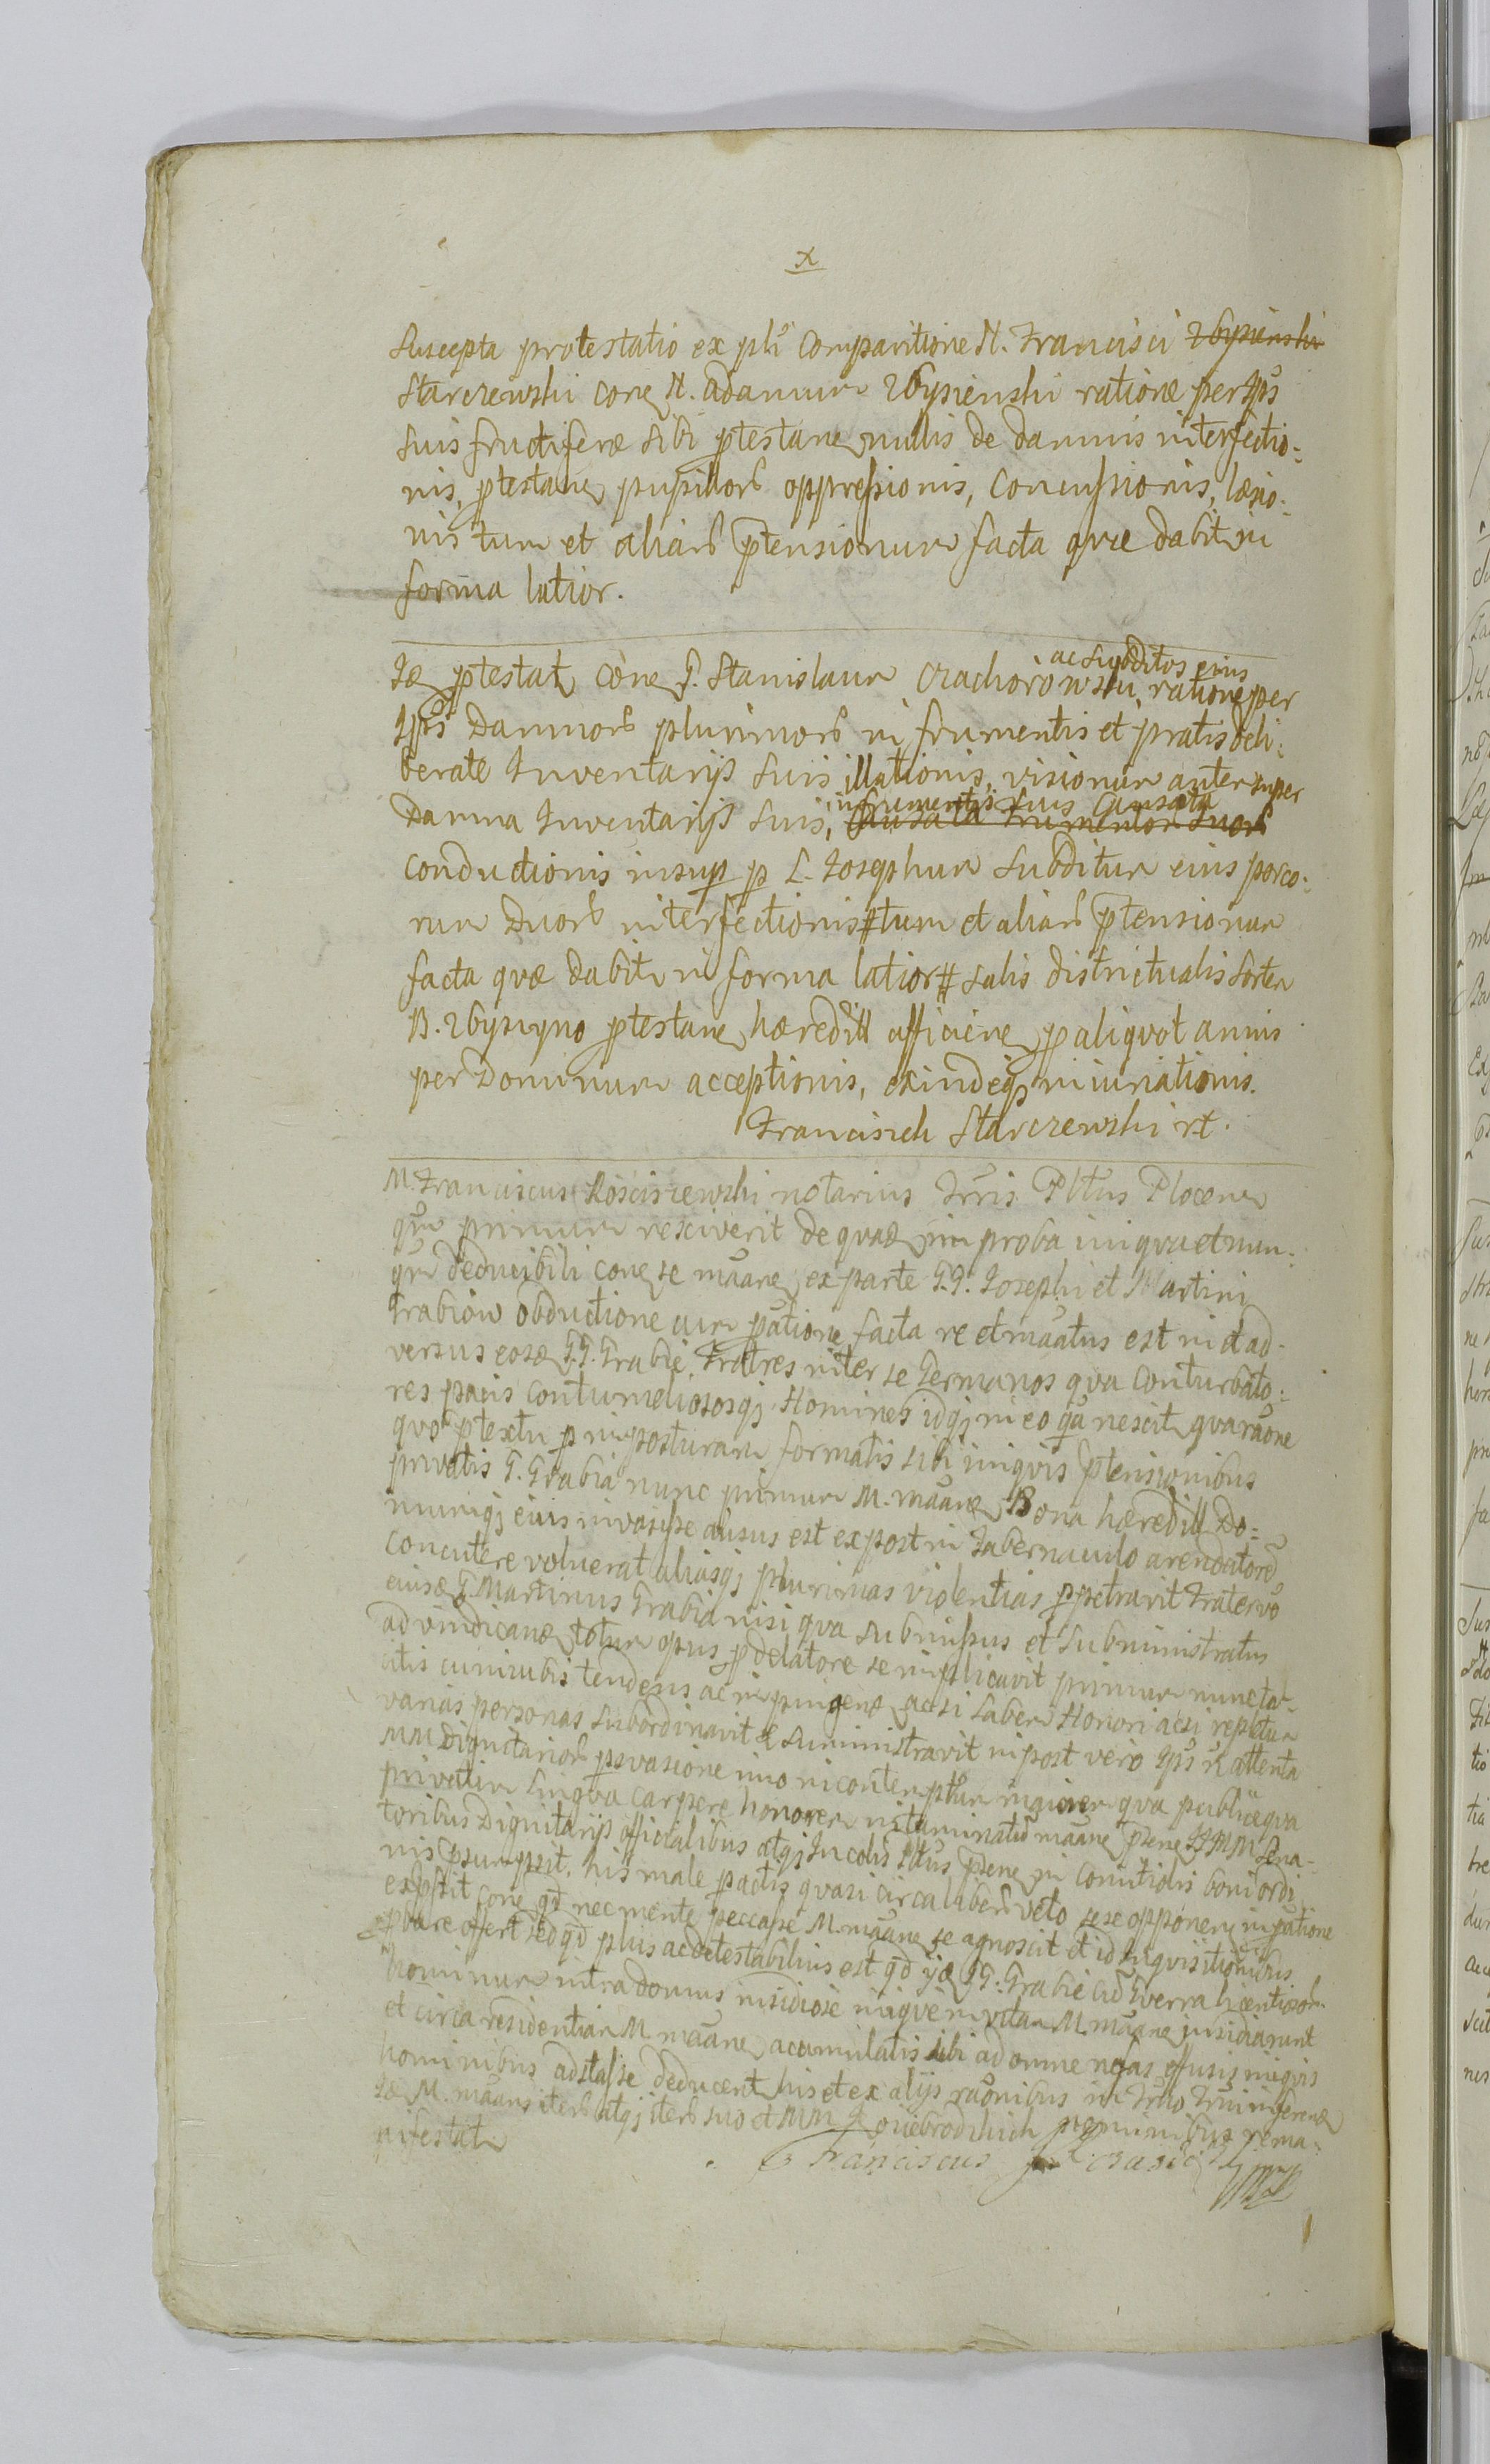 x
Suscepta protestatio ex pli Comparitione N. Francisci Zbysienski
Starczewski cone N. Adamum Zbysienski ratione per Ips
suis fructiferæ sibi ptestane nullis de damnis interfectio:
nis, ptestane pupillorb oppressionis, Concussionis, læsio:
nis tum et aliarb ptensionum facta quæ dabit in
forma latior.
Id ptestat cone G. Stanislaum Crachorowski, ac subditos eius ratione per
Ips Damnorb plurimorb in frumentis et pratis deli:
berate Inventarijs suis illationis, visionum autem super
Damna Inventarijs suis, in frumentis suis Causata Causata frumentor suorb
conductionis insup p L. Josephum subditum eius porco:
rum Duorb interfectionis # tum et aliarb ptensionum
facta quæ dabit in forma latior # salis districtualis sortem
B. Zbyszyno ptestane hæredill afficiene p aliquot annis
per Dominum acceptionis, exindeq iniuriationis.
Francisich Starczewski rt.
M. Franciscus Kosciszewski notarius Trris Pltus Plocen
qm primum resciverit de quad improba iniqua et nun:
qm deducibili cone se maane ex parte G.G. Josephi et Martini
Grabiow obductione cum patione facta re et maatus est in et ad:
versus eosd G.G. Grabie, Fratres inter se Germanos qua Conturbato:
res pacis Contumeliososqj Homines idqj in eo qa nescit qua raone
quo ptextu p imposturam formatis sibi iniquis ptensionibus
privatis G. Grabia nunc primum M. maane Bona hæredill Do:
mumqj eius invasisse ausus est ex post in Tabernaculo arendatore
Concutere voluerat aliasqj plurimas violentias ppetravit Frater vo
eiusd G. Martinus Grabia nisi qua submissus et subministratus
ad vindicand totum opus p delatore se implicavit primum nunc ta
citis cuniculis tendens ac impingend acsi laben Honori acsi reputum
varias personas subordinavit & sumministravit in post vero Ips n attenta
MM Dignitariorb psvasione imo in contemptum in gioren qua publice qua
privatim lingua carpere honorem intaminatum maane psene IIMM Sena:
toribus Dignitarijs officialibus atqj Incolis Pltus psene in comitiolis boni ordi
nis psumpsit, his male pactis quasi circa liberb veto sese opponen impatione
exstitit cone qd nec mente peccasse M. maane se agnoscit et id inquisitionibus
pbare offert sed qd plus ac detestabilius est qd ijd GG. Grabie
hominum intra domus insidiose inique in vitam M. maane insidiarunt
et circa residentiam M. maane acumulatis sibi ad omne nefas effusis iniquis
hominibus adstasse deducent his et ex alijs raonibus in Trto Trni inferend
Id M. maans iterb atqj iterb suo et MM nominibus rema:
nifestat
Franciscus